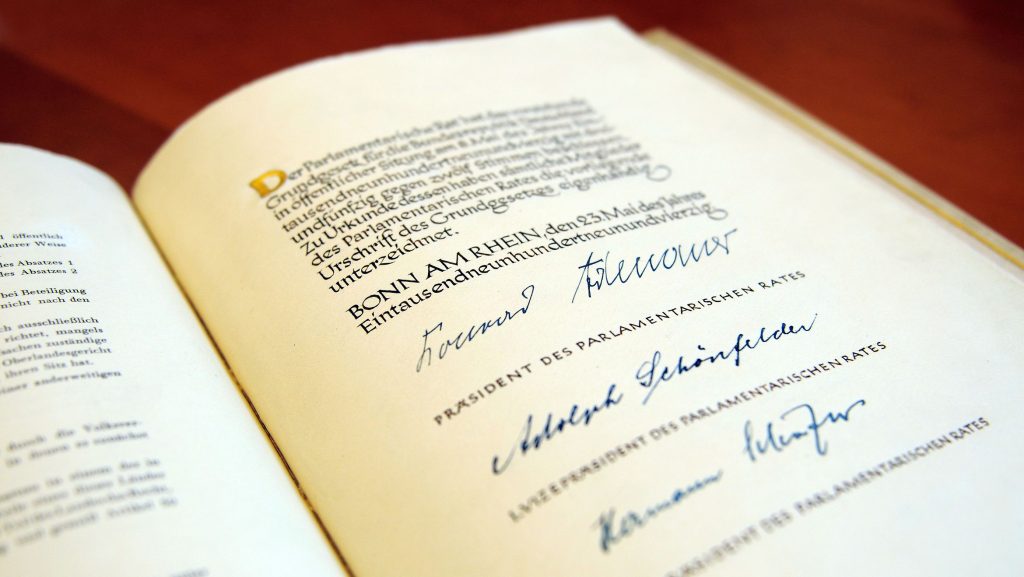 öffentlich
anderer Weise
des Absatzes 1
des Absatzes 2
bei Beteiligung
nicht nach den
ausschließlich
richtet, mangels
zuständige
Oberlandesgericht
ihren Sitz hat.
anderweitigen
durch die
Der Parlamentarische Rat hat das vorstehende
Grundgesetz für die Bundesrepublik Deutschland
in öffentlicher Sitzung am 8. Mai des Jahres Ein-
tausendneunhundertneunundvierzig mit drei-
undfünfzig gegen zwölf Stimmen beschlossen.
Zu Urkunde dessen haben sämtliche Mitglieder
des Parlamentarischen Rates die vorliegende
Urschrift des Grundgesetzes eigenhändig
unterzeichnet.
BONN AM RHEIN, den 23. Mai des Jahres
Eintausendneunhundertneunundvierzig
Konrad Adenauer
PRÄSIDENT DES PARLAMENTARISCHEN RATES
Adolph Schönfelder
I. VIZEPRÄSIDENT DES PARLAMENTARISCHEN RATES
Hermann Schäfer
PRÄSIDENT DES PARLAMENTARISCHEN RATES